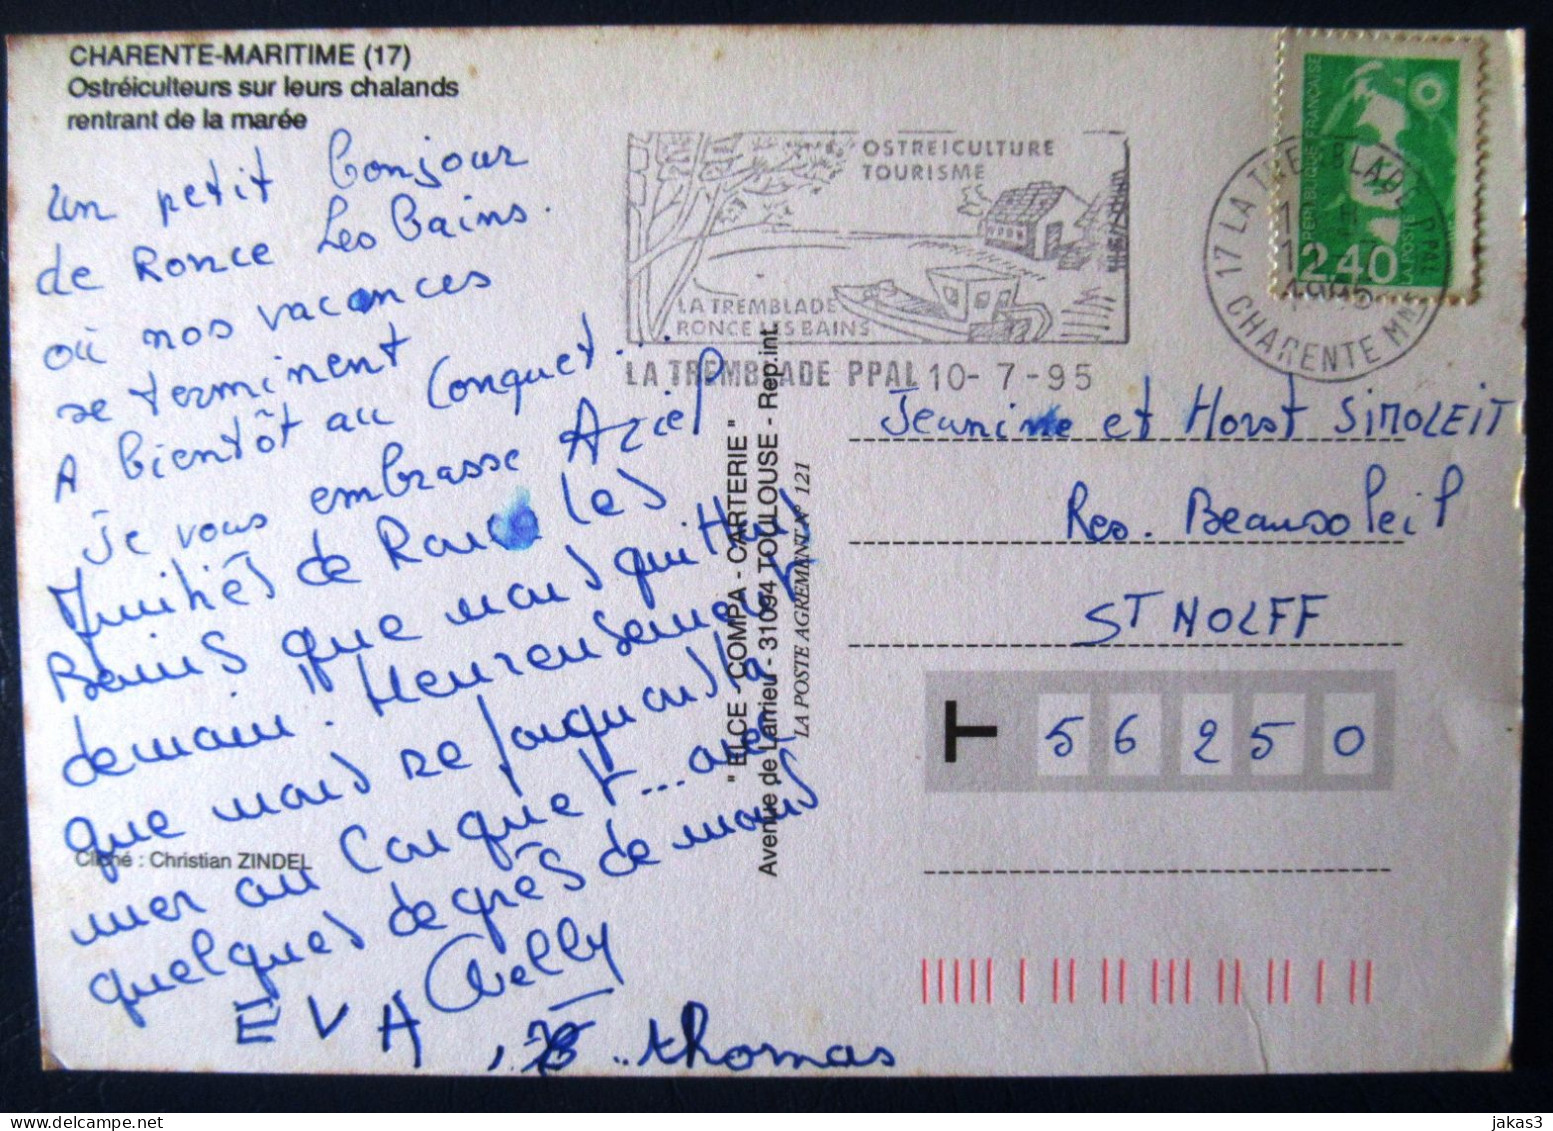 CHARENTE-MARITIME (17)
Ostréiculteurs sur leurs chalands
rentrant de la marée
un petit bonjour
de Ronce Les Bains.
où nos vacances
se terminent
A bientôt au Conquet...
Je vous embrasse Aziel
Amitiés de Ronce les
Bains que nous quittons
demain. Heureusement
que nous re jusqu la
mer au Conquet... avec
quelques degrés de moins
Cliché : Christian ZINDEL
Nelly
EVA
, .. thomas
" ELCE COMPA - CARTERIE "
Avenue de Larrieu - 31094 TOULOUSE - Rep.int.
LA POSTE AGREMENT N° 121
OSTREICULTURE
TOURISME
LA TREMBLADE
RONCE LES BAINS
LA TREMBLADE PPAL 10-7-95
17 LA TREMBLADE PPAL
1995
CHARENTE MME
REPUBLIQUE FRANÇAISE
2,40
LA POSTE
Jeanine et Horst SIMOLEIT
Res. Beausoleil
ST NOLFF
T 56250
jakas3